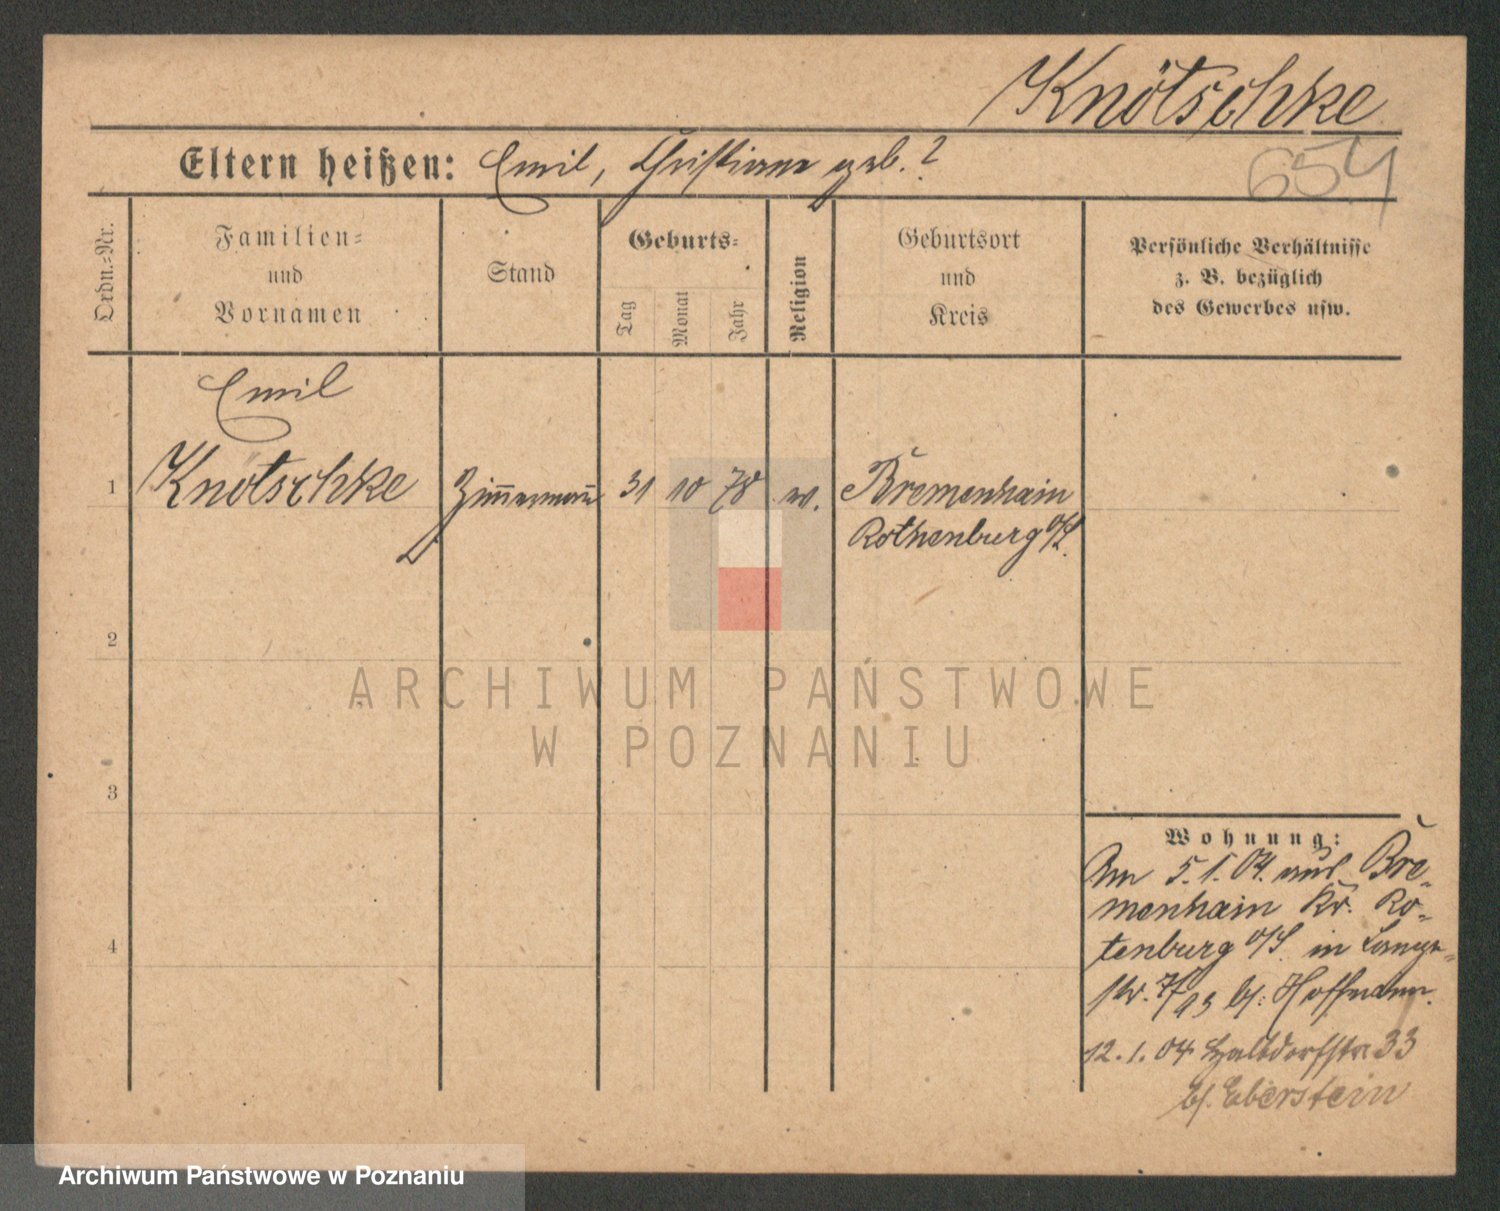 Knötschke
654
Eltern heißen: Emil, Christiane geb. ?
Ordn.=Nr.
Familien=
und
Vornamen
Stand
Geburts=
Tag
Monat
Jahr
Religion
Geburtsort
und
Kreis
Persönliche Verhältnisse
z. B. bezüglich
des Gewerbes usw.
1
Emil
Knötschke
Zimmermann
31
10
78
ev.
Bremenhain
Rothenburg O/L.
2
3
4
Wohnung:
Am 5.1.04. aus Bre-
menhain Kr. Ro-
tenburg O/L. in Lange-
str. bj: Hoffmann.
12.1.04 33
bj. Eberstein
ARCHIWUM PAŃSTWOWE
W POZNANIU
Archiwum Państwowe w Poznaniu